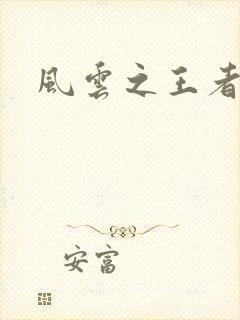 風雲之王者
安富